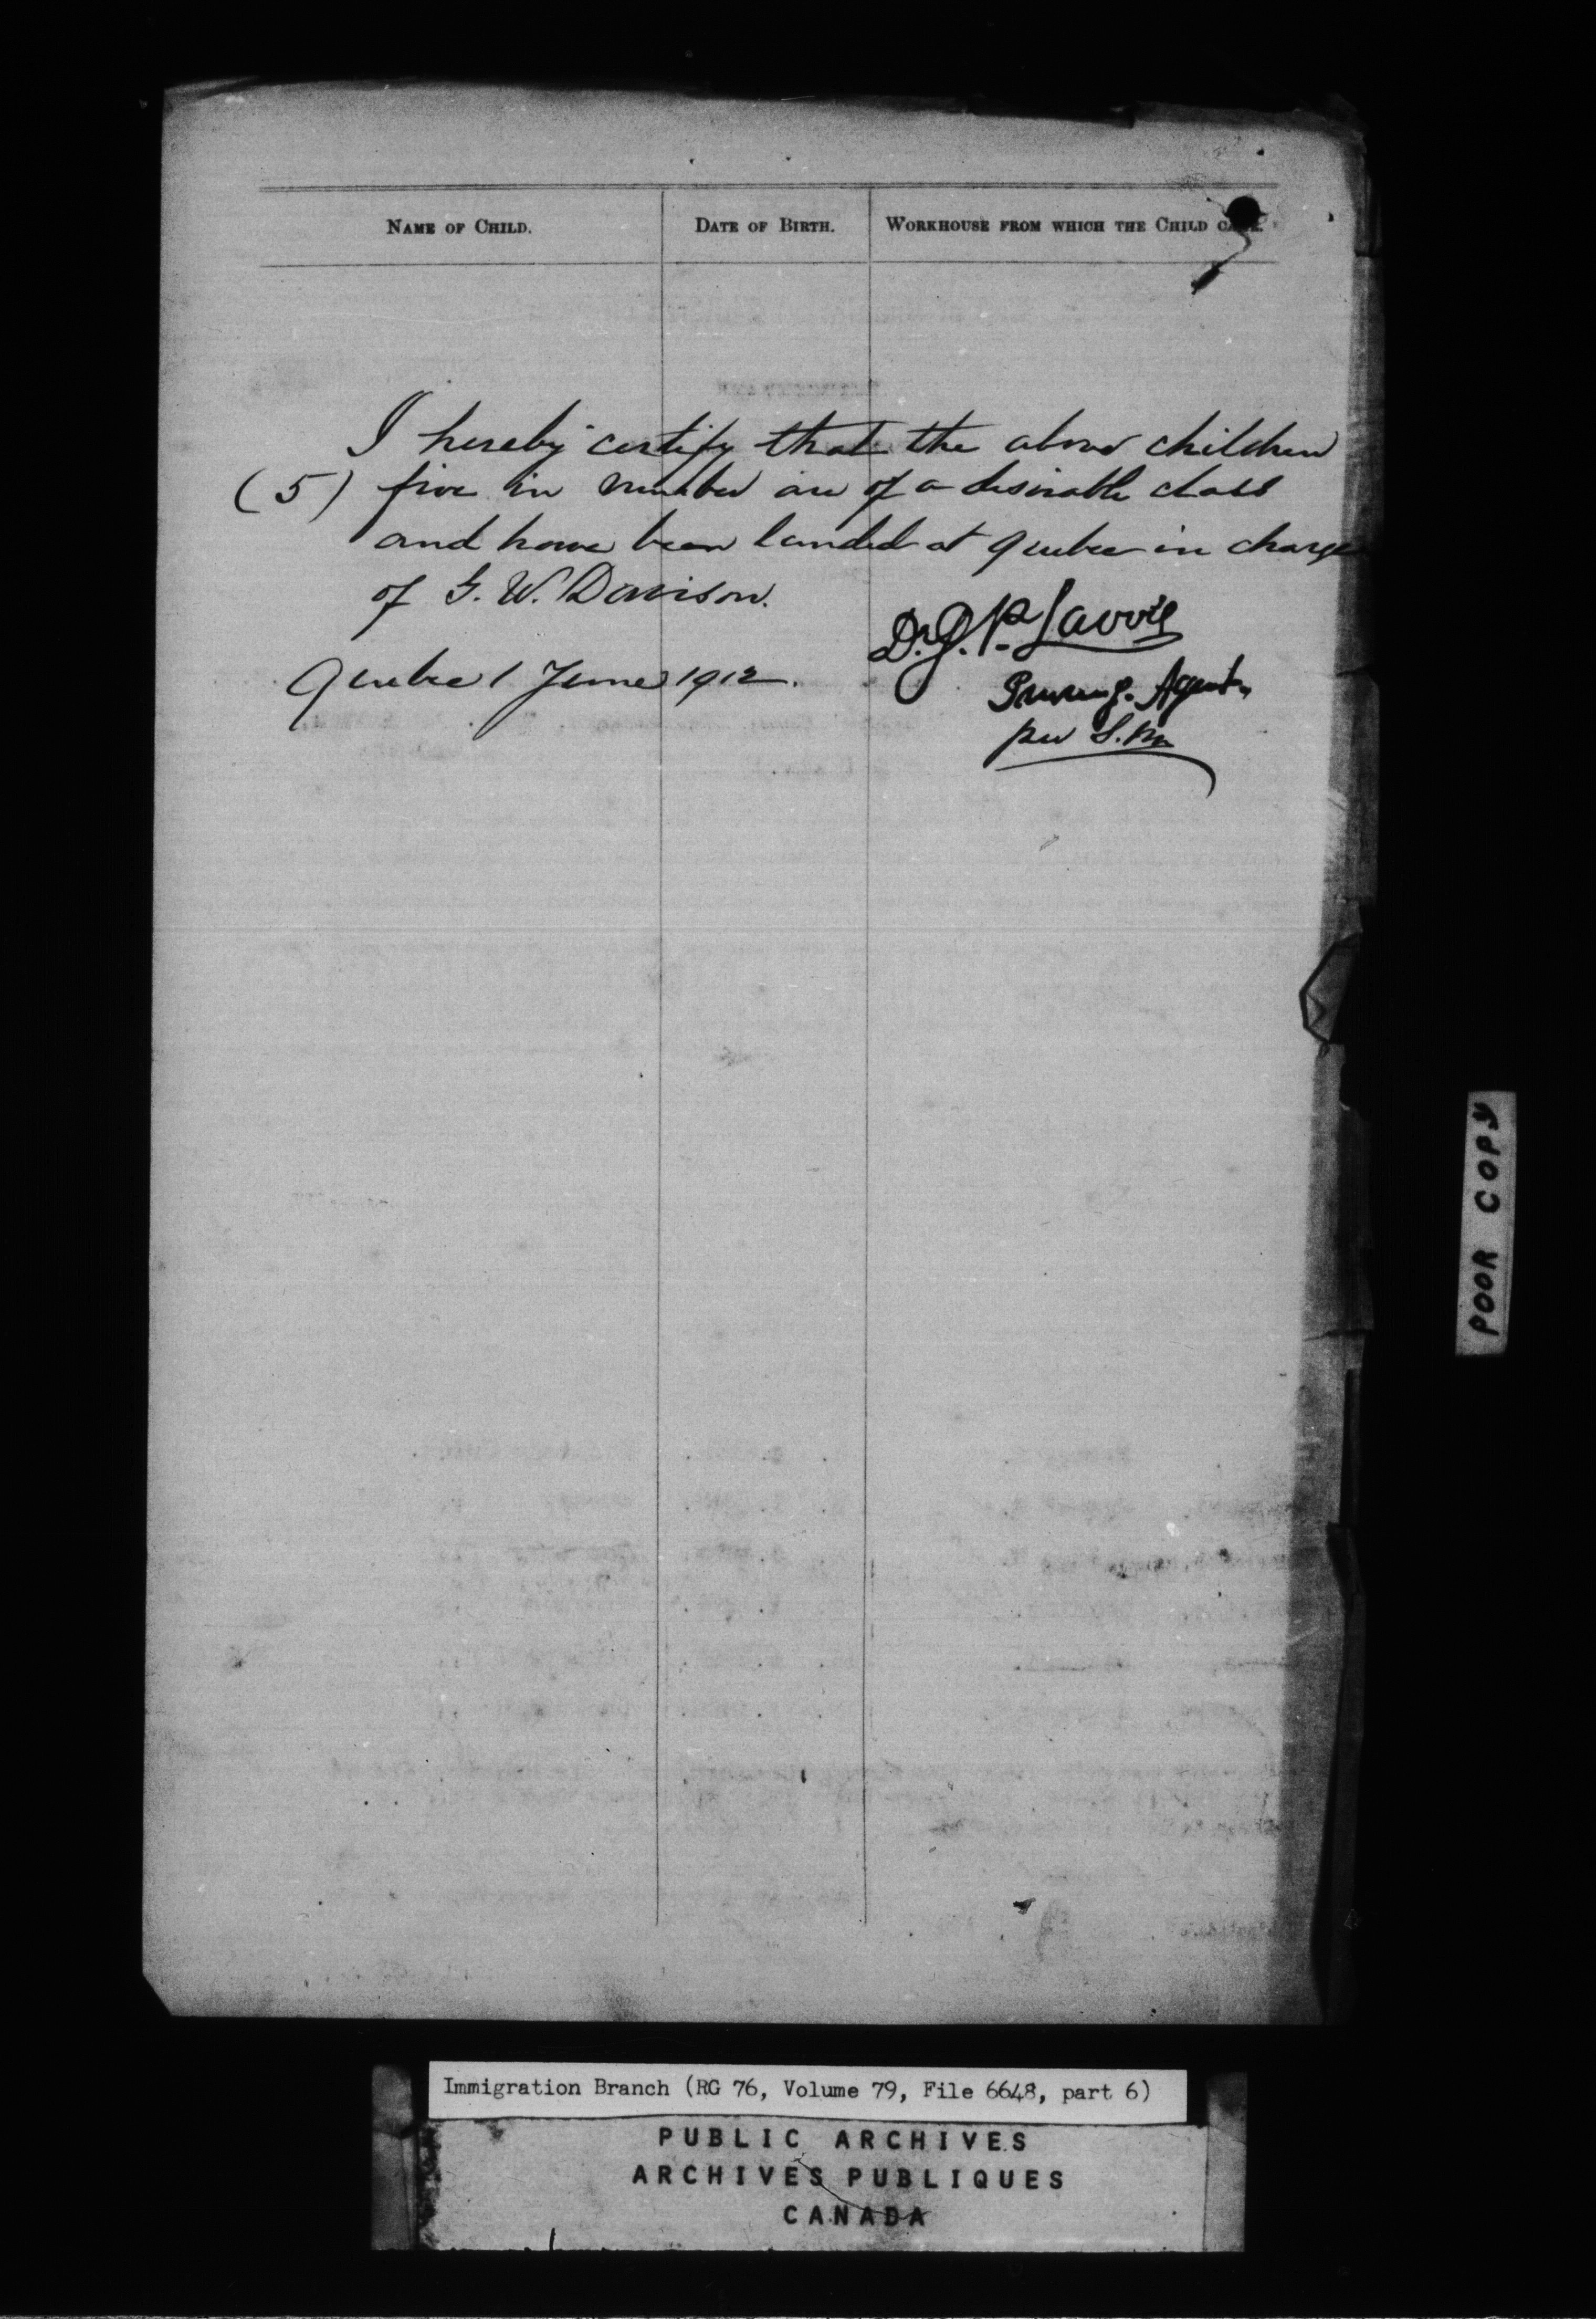 NAME OF CHILD. DATE OF BIRTH. WORKHOUSE FROM WHICH THE CHILD CAME.
I hereby certify that the above children
(5) five in number are of a desirable class
and have been landed at Quebec in charge
of G. W. Davison.
Dr. J. P. Lavoie
Quebec 1 June 1912.
Immig. Agent.
per S. M.
POOR COPY
Immigration Branch (RG 76, Volume 79, File 6648, part 6)
PUBLIC ARCHIVES
ARCHIVES PUBLIQUES
CANADA